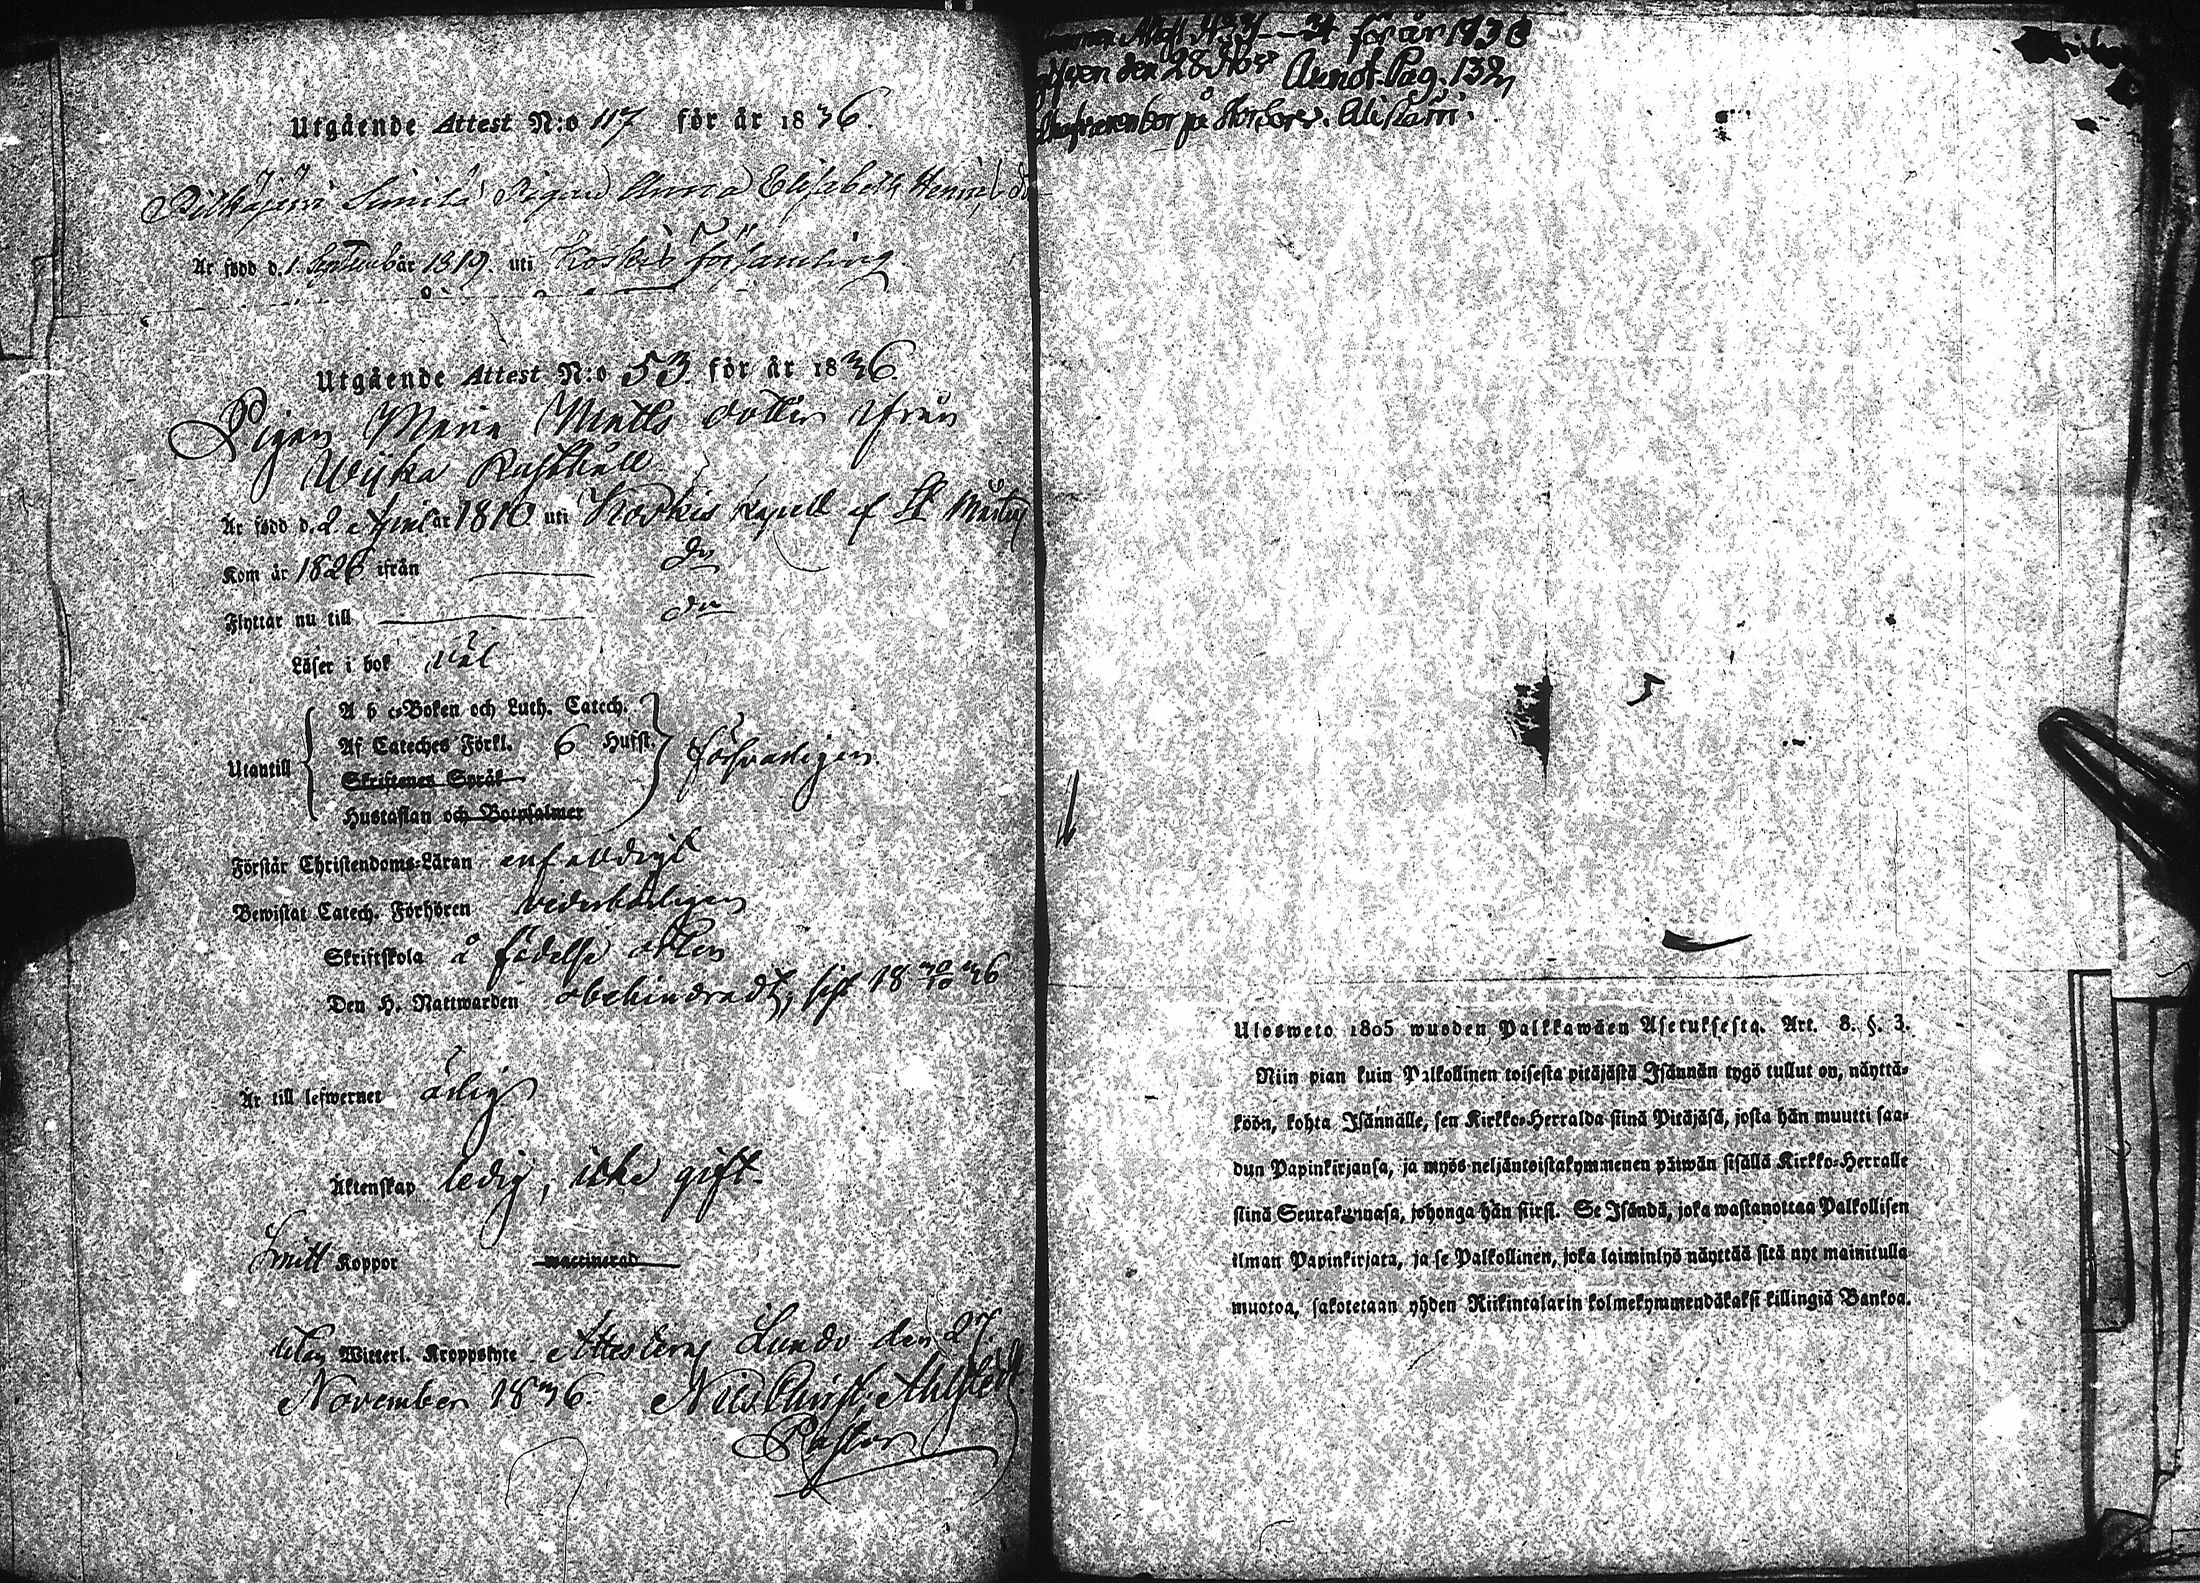 Utgående Attest N:o 117 för år 1836.
Pigan Anna Elisabeth
Är född d. 1. September år 1819. uti Koskis församling
Utgående Attest N:o 53. för år 1836.
Pigan Maria Matts dotter ifrån
Wijka Rusthåll
Är född d. 2 April år 1810 uti Koskis kapell af St Mårtens
Kom år 1826 ifrån do
Flyttar nu till do
Läser i bok väl
A b c-Boken och Luth. Catech.
Af Cateches Förkl. 6 Hufst.
Utantill försvarligen
Skriftenes Språk
Hustaflan och Botpsalmer
Förstår Christendoms-Läran enfaldigt
Bewistat Catech. Förhören vederbörligen
Skriftskola å födelse orten
Den H. Nattwarden obehindradt, sist 18 30/10 36
Är till lefwernet ärlig
Äktenskap ledig, icke gift
haft Koppor waccinerad
utan Witterl. Kroppslyte Attesteras Lundo den 27.
November 1836. Nils Christ. Ahlstedt
Pastor
för år 1836
den 28 Nov Annot. Pag. 132,
bor på
Ulosweto 1805 wuoden Palkkawäen Asetuksesta. Art. 8. §. 3.
Niin pian kuin Palkollinen toisesta pitäjästä Isännän tygö tullut on, näyttä-
köön, kohta Isännälle, sen Kirkko-Herralda siinä Pitäjäsä, josta hän muutti saa-
dun Papinkirjansa, ja myös neljäntoistakymmenen päiwän sisällä Kirkko-Herralle
siinä Seurakunnasa, johonga hän siirsi. Se Isändä, joka wastanottaa Palkollisen
ilman Papinkirjata, ja se Palkollinen, joka laiminlyö näyttää sitä nyt mainitulla
muotoa, sakotetaan yhden Riikintalarin kolmekymmendäkaksi killingiä Bankoa.